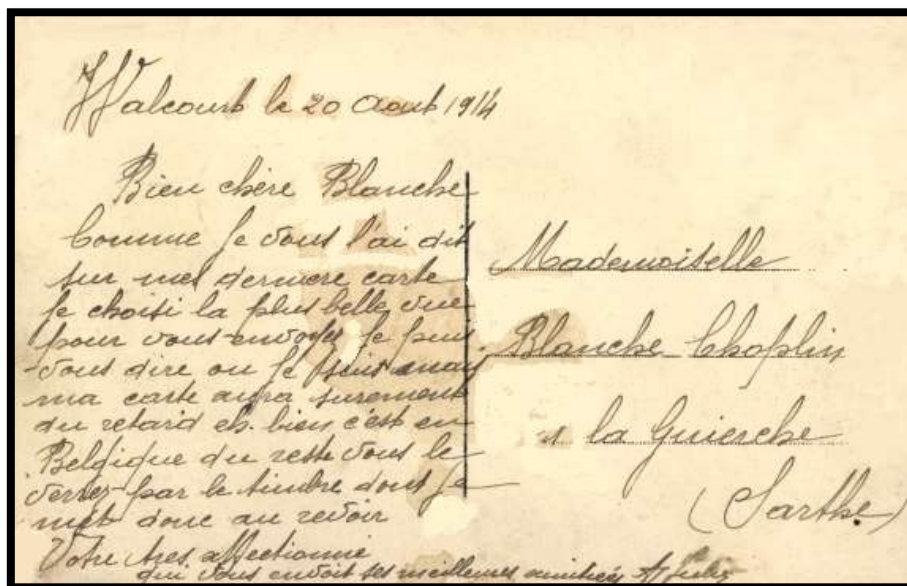 Walcourt le 20 Aout 1914
Bien chère Blanche
Comme je vous l'ai dit
sur mes derniere carte
je choisi la plus belle vue
pour vous envoyer je puis
vous dire ou je suis mais
ma carte aura surement
du retard eh bien c'est en
Belgique du reste vous le
verrez par le timbre dont je
met donc au revoir
Votre tres affectionné
qui vous envoit ses meilleures amitiées
Mademoiselle
Blanche Choplin
la Guierche
(Sarthe)